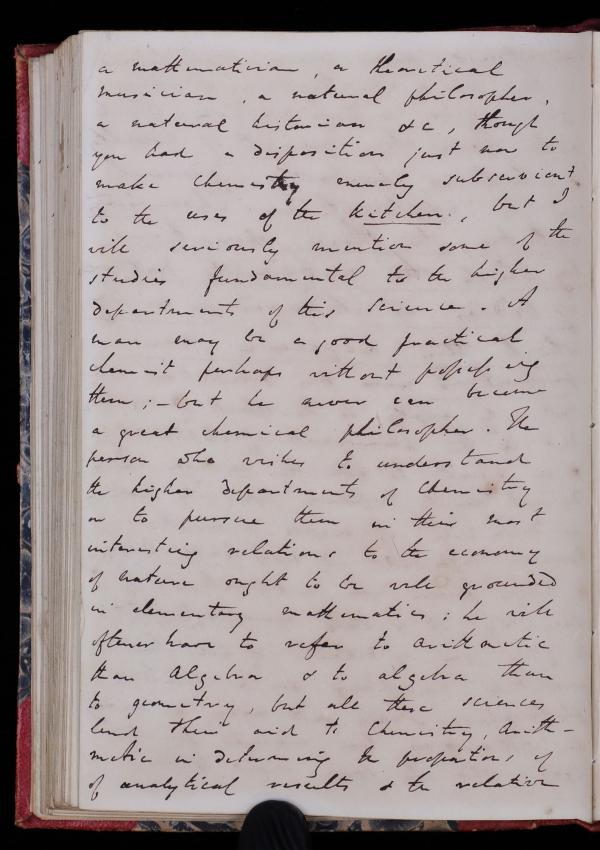 a mathematician, a theoretical
musician, a natural philosopher,
a natural historian &c, though
you had a disposition just now to
make chemistry merely subservient
to the uses of the kitchen., but I
will seriously mention some of the
studies fundamental to the higher
departments of this Science. A
man may be a good practical
chemist perhaps without possessing
them; – but he never can become
a great chemical philosopher. The
person who wishes to understand
the higher departments of Chemistry
or to pursue them in their most
interesting relations to the economy
of nature ought to be well grounded
in elementary mathematics; he will
oftener have to refer to arithmetic
than Algebra & to algebra than
to geometry, but all these sciences
lend their aid to Chemistry, Arith-
metic in determining the proportions of
of analytical results & the relative